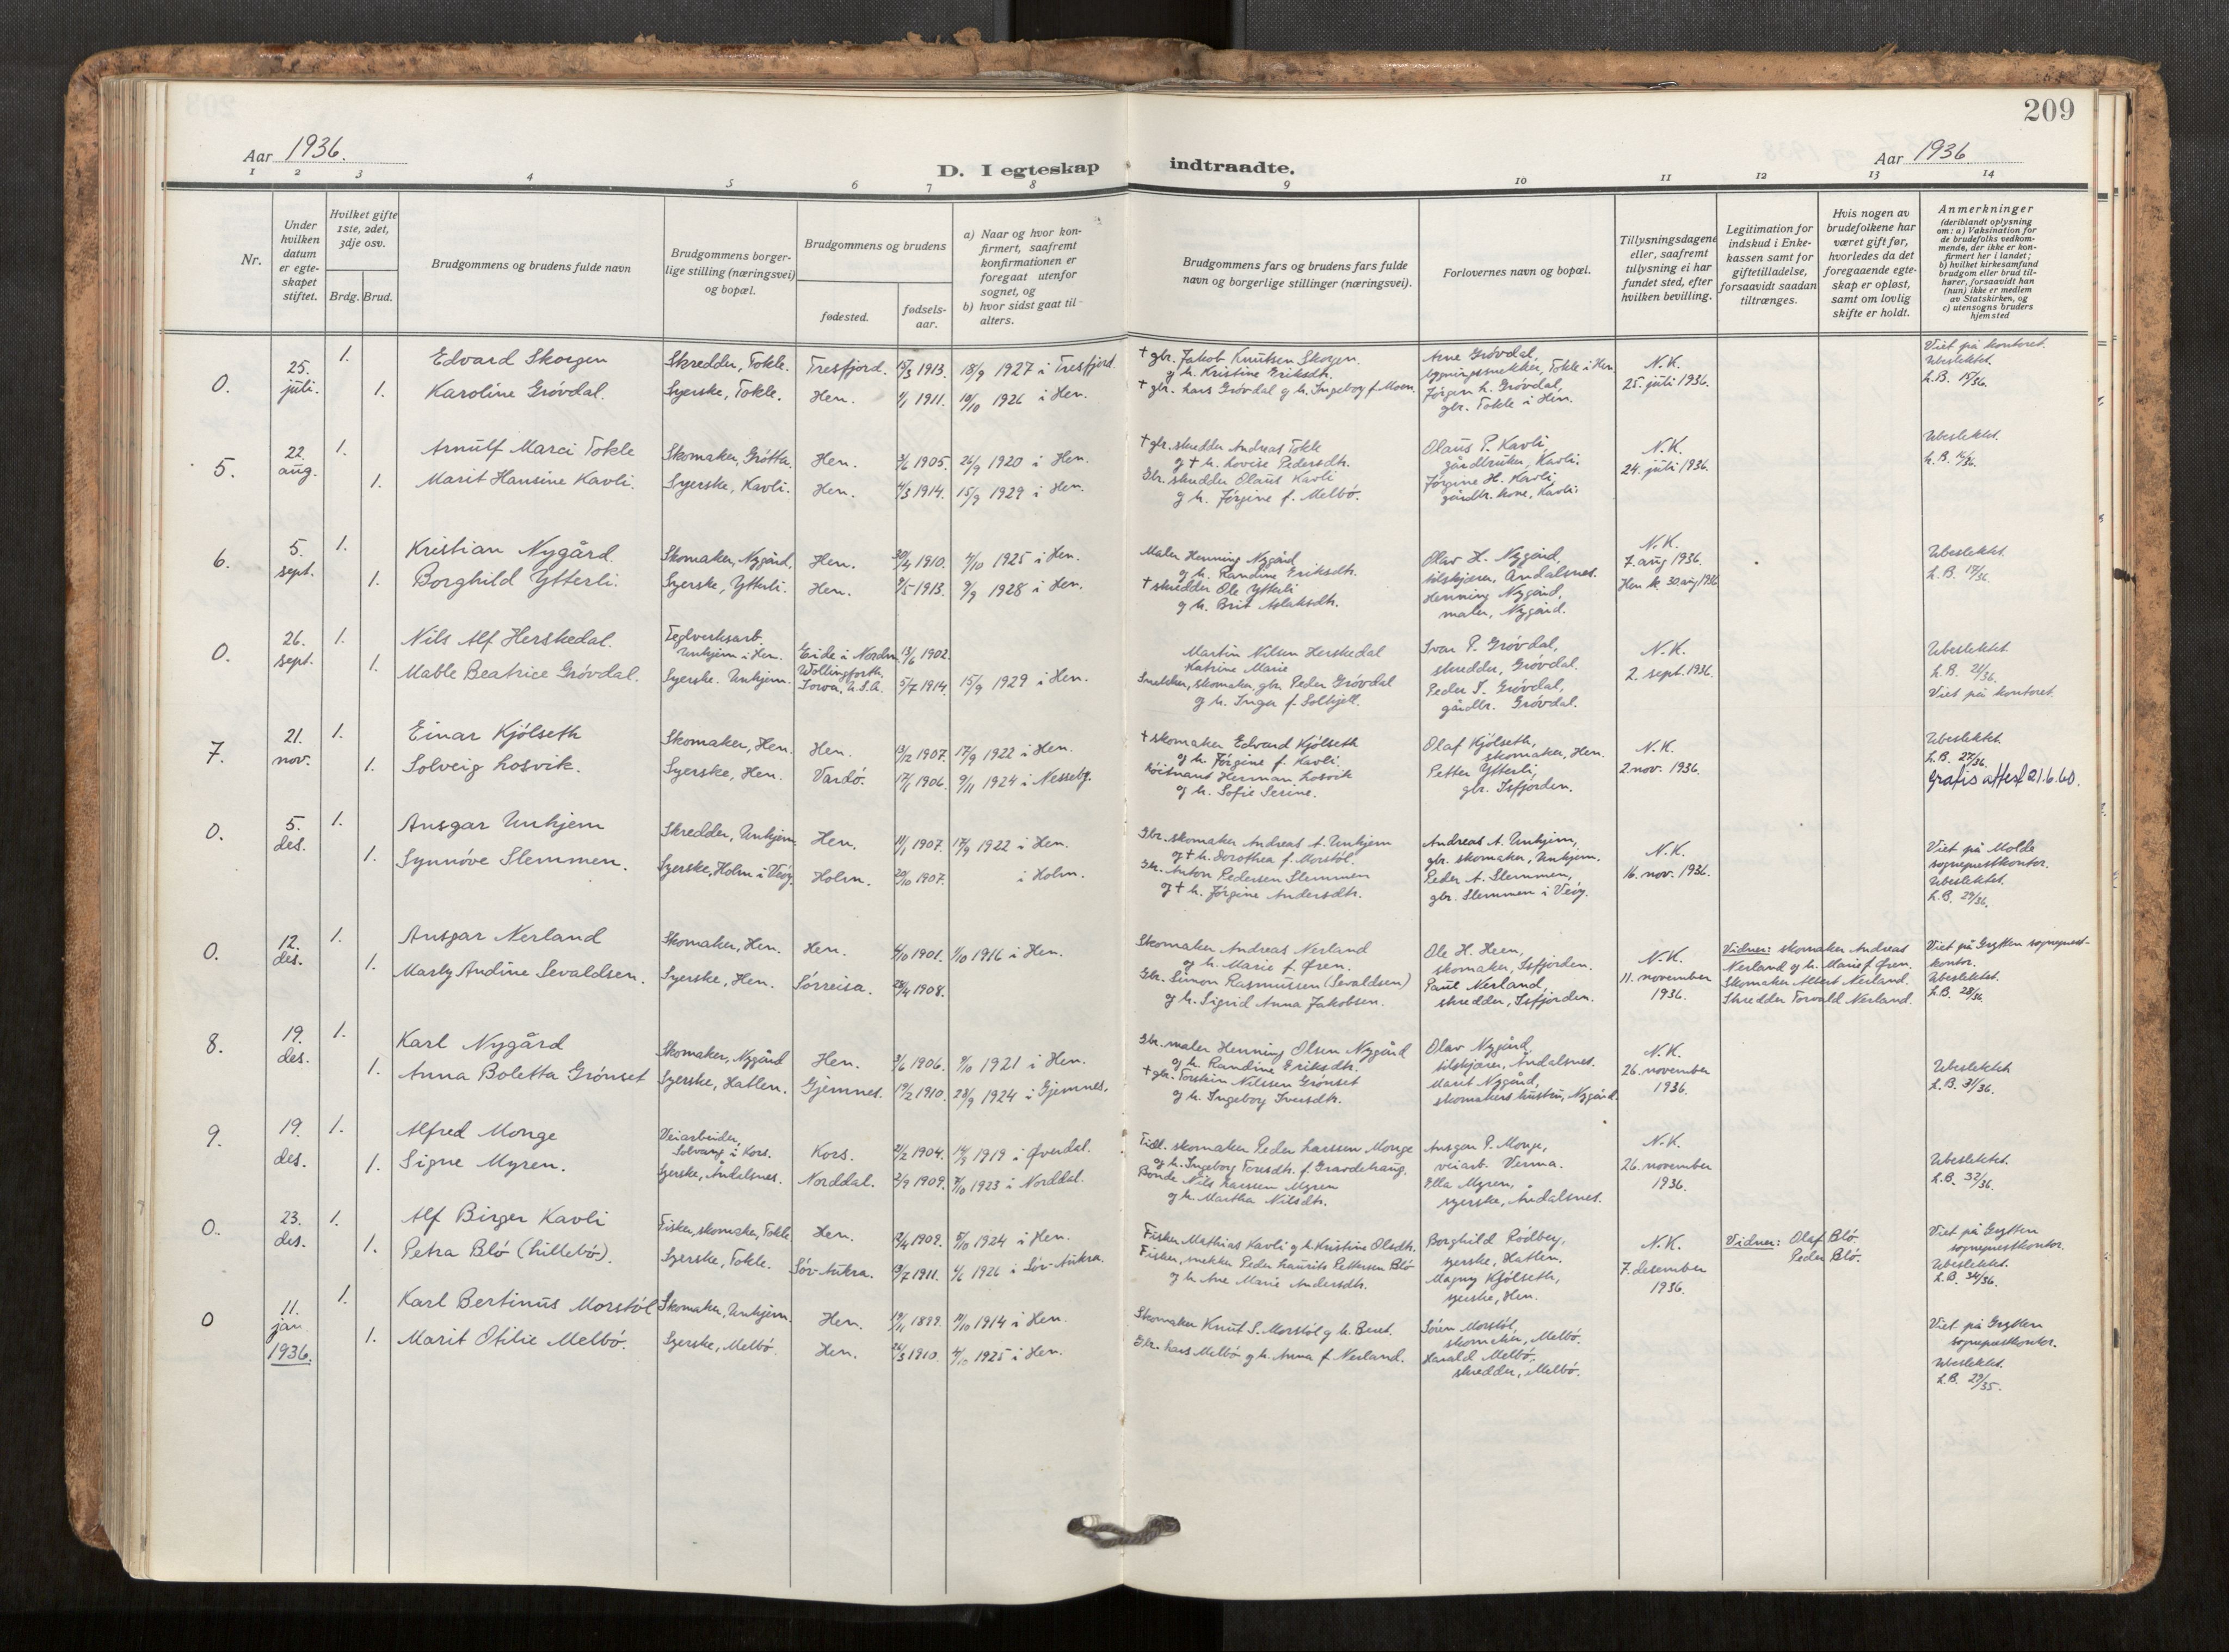 209
Aar 1936.
D. I egteskap indtraadte.
Aar 1936
1 2 3 4 5 6 7 8 9 10 11 12 13 14
Nr.
Under hvilken datum er egteskapet stiftet.
Hvilket gifte 1ste, 2det, 3dje osv.
Brdg. Brud.
Brudgommens og brudens fulde navn
Brudgommens borgerlige stilling (næringsvei) og bopæl.
Brudgommens og brudens
fødested.
fødselsaar.
a) Naar og hvor konfirmert, saafremt konfirmationen er foregaat utenfor sognet, og
b) hvor sidst gaat til alters.
Brudgommens fars og brudens fars fulde navn og borgerlige stillinger (næringsvei).
Forlovernes navn og bopæl.
Tillysningsdagene eller, saafremt tillysning ei har fundet sted, efter hvilken bevilling.
Legitimation for indskud i Enkekassen samt for giftetilladelse, forsaavidt saadan tiltrænges.
Hvis nogen av brudefolkene har været gift før, hvorledes da det foregaaende egteskap er opløst, samt om lovlig skifte er holdt.
Anmerkninger (deriblandt oplysning om: a) Vaksination for de brudefolks vedkommende, der ikke er konfirmert her i landet; b) hvilket kirkesamfund brudgom eller brud tilhører, forsaavidt han (hun) ikke er medlem av Statskirken, og c) utensogns bruders hjemsted
0. 25. juli. 1. Edvard Skorgen Skredder, Tokle. Tresfjord. 1913. 18/9 1927 i Tresfjord.
1. Karoline Grövdal. Syerske, Tokle. Hen. 1911. 10/10 1926 i Hen.
† gbr. Jakob Knutsen Skorgen
og h. Kristine Eriksdtr.
† gbr. Lars Grövdal og h. Ingeborg f. Moen.
Arne Grövdal,
bygningssnekker, Tokle i Hen
Jørgen L. Grövdal,
gbr. Tokle i Hen.
N.K.
25. juli 1936.
Viet på kontoret.
Ubeslektet.
L.B. 15/36.
5. 22. aug. 1. Arnulf Marci Tokle Skomaker, Grötta. Hen. 3/6 1905. 26/9 1920 i Hen.
1. Marit Hansine Kavli. Syerske, Kavli. Hen. 1914. 15/9 1929 i Hen.
† gbr. skredder Andreas Tokle
og † h. Lovise Pedersdtr.
Gbr. skredder Olaus Kavli
og h. Jörgine f. Melbö.
Olaus P. Kavli,
gårdbruker, Kavli.
Jörgine H. Kavli,
gårdbr. kone, Kavli.
N.K.
24. juli 1936.
Ubeslektet.
L.B. 16/36.
6. 5. sept. 1. Kristian Nygård Skomaker, Nygård. Hen. 30/4 1910. 4/10 1925 i Hen.
1. Borghild Ytterli. Syerske, Ytterli. Hen. 1913. 9/9 1928 i Hen.
Maler Henning Nygård
og h. Randine Eriksdtr.
† skredder Ole Ytterli
og h. Brit Aslaksdtr.
Olav H. Nygård,
tilskjærer, Åndalsnes.
Henning Nygård,
maler, Nygård.
N.K.
7. aug 1936.
Hen k. 30. aug 1936
Ubeslektet.
L.B. 17/36.
0. 26. sept. 1. Nils Alf Herskedal. Teglverksarb. Unhjem i Hen. Eide i Nordm. 13/6 1902.
1. Mable Beatrice Grövdal. Syerske. Unhjem. Iowa, U.S.A. 5/7 1914. 15/9 1929 i Hen.
Martin Nilsen Herskedal
Katrine Marie
Snekker, skomaker, gbr. Peder Grövdal
og h. Inga f. Solhjell.
Ivar P. Grövdal,
skredder, Grövdal.
Peder I. Grövdal,
gårdbr. Grövdal.
N.K.
2. sept. 1936.
Ubeslektet
L.B. 21/36.
Viet på kontoret.
7. 21. nov. 1. Einar Kjölseth Skomaker, Hen. Hen. 13/12 1907. 17/9 1922 i Hen.
1. Solveig Losvik. Syerske, Hen. Vardö. 1906. 9/11 1924 i Nesseby.
† skomaker Edvard Kjölseth
og h. Jörgine f. Kavli.
Löitnant Herman Losvik
og h. Sofie Serine.
Olaf Kjölseth,
skomaker, Hen.
Petter Ytterli,
gbr. Isfjorden.
N.K.
2. nov. 1936.
Ubeslektet.
L.B. 27/36.
Gratis attest 21.6.60.
0. 5. des. 1. Ansgar Unhjem Skredder, Unhjem Hen. 1907. 17/9 1922 i Hen.
1. Synnöve Slemmen. Syerske, Holm i Veöy. Holm. 20/10 1907. i Holm.
Gbr. skomaker Andreas A. Unhjem
og † h. Dorothea f. Morstöl.
Gbr. Anton Pedersen Slemmen
og † h. Jörgine Andersdtr.
Andreas A. Unhjem,
gbr. skomaker, Unhjem.
Peder A. Slemmen,
gbr. Slemmen i Veöy.
N.K.
16. nov. 1936.
Viet på Molde
sogneprestkontor.
Ubeslektet.
L.B. 29/36.
0. 12. des. 1. Ansgar Nerland Skomaker, Hen. Hen. 1901. 1/10 1916 i Hen.
1. Marly Andine Sevaldsen. Syerske, Hen. Sörreisa. 1908.
Skomaker Andreas Nerland
og h. Marie f. Øren.
Gbr. Simon Rasmussen (Sevaldsen)
og h. Sigrid Anna Jakobsen.
Ole H. Heen,
skomaker, Isfjorden.
Paul Nerland,
skredder, Isfjorden.
N.K.
11. november
1936.
Vidner: skomaker Andreas
Nerland og h. Marie f. Øren.
Skomaker Albert Nerland.
Skredder Torvald Nerland.
Viet på Grytten sogneprest-
kontor.
Ubeslektet.
L.B. 28/36
8. 19. des. 1. Karl Nygård Skomaker, Nygård Hen. 3/6 1906. 9/10 1921 i Hen.
1. Anna Boletta Grönset Syerske, Hatlen. Gjemnes. 19/2 1910. 28/9 1924 i Gjemnes.
Gbr. maler Henning Olsen Nygård
og h. Randine Eriksdtr.
† gbr. Torstein Nilssen Grönset
og h. Ingeborg Iversdtr.
Olav Nygård,
tilskjærer, Åndalsnes.
Marit Nygård,
skomakers hustru, Nygård.
N.K.
26. november
1936.
Ubeslektet
L.B. 31/36.
9. 19. des. 1. Alfred Monge Veiarbeider, Solvang i Kors. Kors. 1904. 1919 i Øverdal.
1. Signe Myren. Syerske, Åndalsnes. Norddal. 2/9 1909. 7/10 1923 i Norddal.
Tidl. skomaker Peder Larssen Monge
og h. Ingeborg Toresdtr. f. Gravdehaug.
Bonde Nils Larssen Myren
og h. Martha Nilsdtr.
Ansgar P. Monge,
veiarb. Verma.
Ella Myren,
syerske, Åndalsnes.
N.K.
26. november
1936.
Ubeslektet.
L.B. 32/36.
0. 23. des. 1. Alf Birger Kavli Fisker, skomaker, Tokle Hen. 1909. 5/10 1924 i Hen.
1. Petra Blö (Lillebö). Syerske, Tokle. Sör-Aukra. 1911. 4/6 1926 i Sör-Aukra.
Fisker Mathias Kavli og h. Kristine Olsdtr.
Fisker, snekker Peder Laurits Pettersen Blö
og h. Ane Marie Andersdtr.
Borghild Rödberg,
syerske, Hatlen.
Magny Kjölseth,
syerske, Hen.
N.K.
7. desember
1936.
Vidner: Olaf Blö.
Peder Blö.
Viet på Grytten
sogneprestkontor.
Ubeslektet.
L.B. 34/36.
0 11. jan. 1936. 1. Karl Bertinus Morstöl Skomaker, Unhjem. Hen. 19/11 1899. 1914 i Hen.
1. Marit Otilie Melbö. Syerske, Melbö. Hen. 26/3 1910. 4/10 1925 i Hen.
Skomaker Knut S. Morstöl og h. Beret.
Gbr. Lars Melbö og h. Anna f. Nerland.
Sören Morstöl,
skomaker, Melbö.
Harald Melbö,
skredder, Melbö.
Viet på Grytten
sogneprestkontor.
Ubeslektet.
L.B. 29/35.